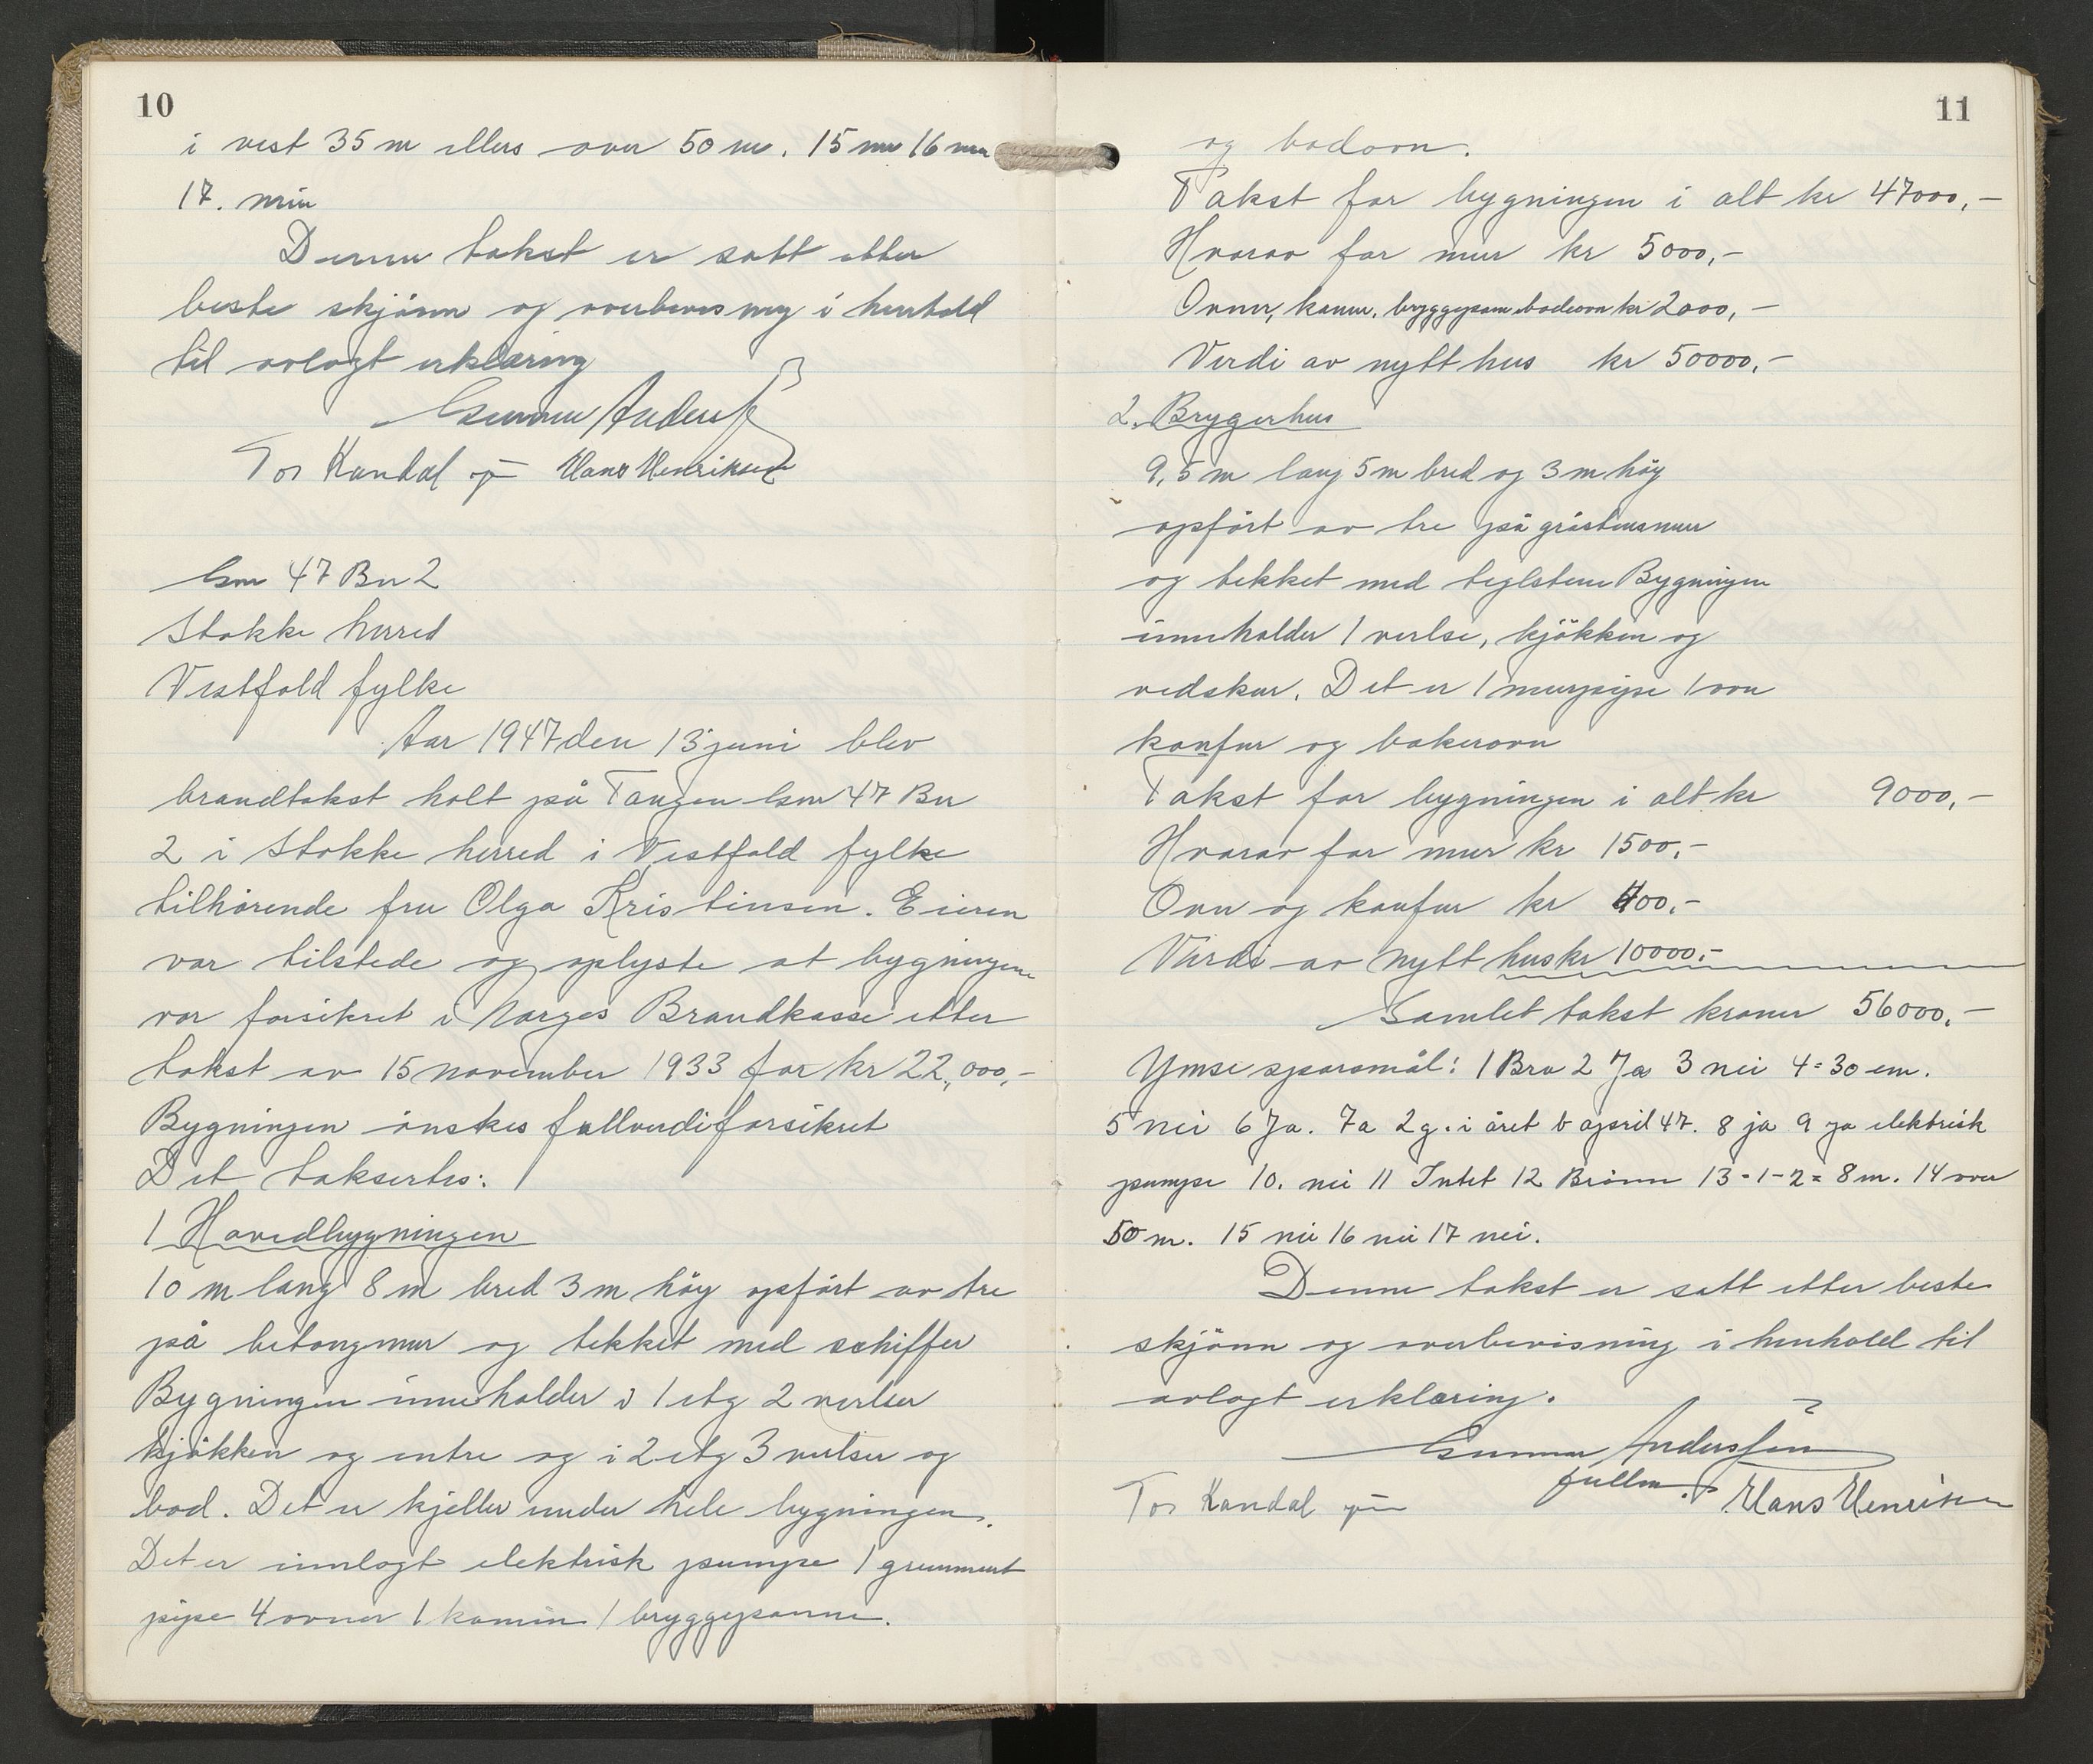 10
i vest 35 m ellers over 50 m. 15 nei 16 nei
17. nei
Denne takst er satt etter
beste skjönn og overbevisning i henhold
til avlagt erklæring
Gunnar Anderssen
Tor Kandal Hans Henriksen
Gnr 47 Bn 2
Stokke herred
Vestfold fylke
Aar 1947 den 13 juni blev
brandtakst holt på Tangen Gnr 47 Bn
2 i Stokke herred i Vestfold fylke
tilhörende fru Olga Kristinsen. Eieren
var tilstede og oplyste at bygningene
var forsikret i Norges Brandkasse etter
takst av 15 november 1933 for kr 22,000,-
Bygningen önskes fullverdiforsikret
Det taksertes:
1 Hovedbygningen
10 m lang 8 m bred 3 m höy opfört av tre
på betongmur og tekket med schiffer
Bygningen inneholder i 1 etg 2 verlser
kjökken og entre og i 2 etg 3 verlser og
bod. Det er kjeller under hele bygningen.
Det er innlagt elektrisk pumpe 1 grunnmurt
pipe 4 ovner 1 kamin 1 bryggepanne.
11
og badovn.
Takst for bygningen i alt kr 47000,-
Hvorav for mur kr 5000,-
Ovner, kamin, bryggepanne badeovn kr 2000,-
Verdi av nytt hus kr 50000,-
2. Brygerhus
9,5 m lang 5 m bred og 3 m höy
opfört av tre på gråstensmur
og tekket med teglstene Bygningen
inneholder 1 verlse, kjökken og
vedskur. Det er 1 murpipe 1 ovn
komfur og bakerovn
Takst for bygningen i alt kr 9000,-
Hvorav for mur kr 1500,-
Ovn og komfur kr 400,-
Værdi av nytt hus kr 10000,-
Samlet takst kroner 56000,-
Ymse spörsmål: 1 Bra 2 Ja 3 nei 4 = 30 cm.
5 nei 6 Ja. 7a 2 g. i året b april 47. 8 ja 9 ja elektrisk
pumpe 10. nei 11 Intet 12 Brönn 13 - 1 - 2 = 8 m. 14 over
50 m. 15 nei 16 nei 17 nei.
Denne takst er satt etter beste
skjönn og overbevisning i henhold til
avlagt erklæring.
Gunnar Anderssen
fullm.
Tor Kandal Hans Henriksen